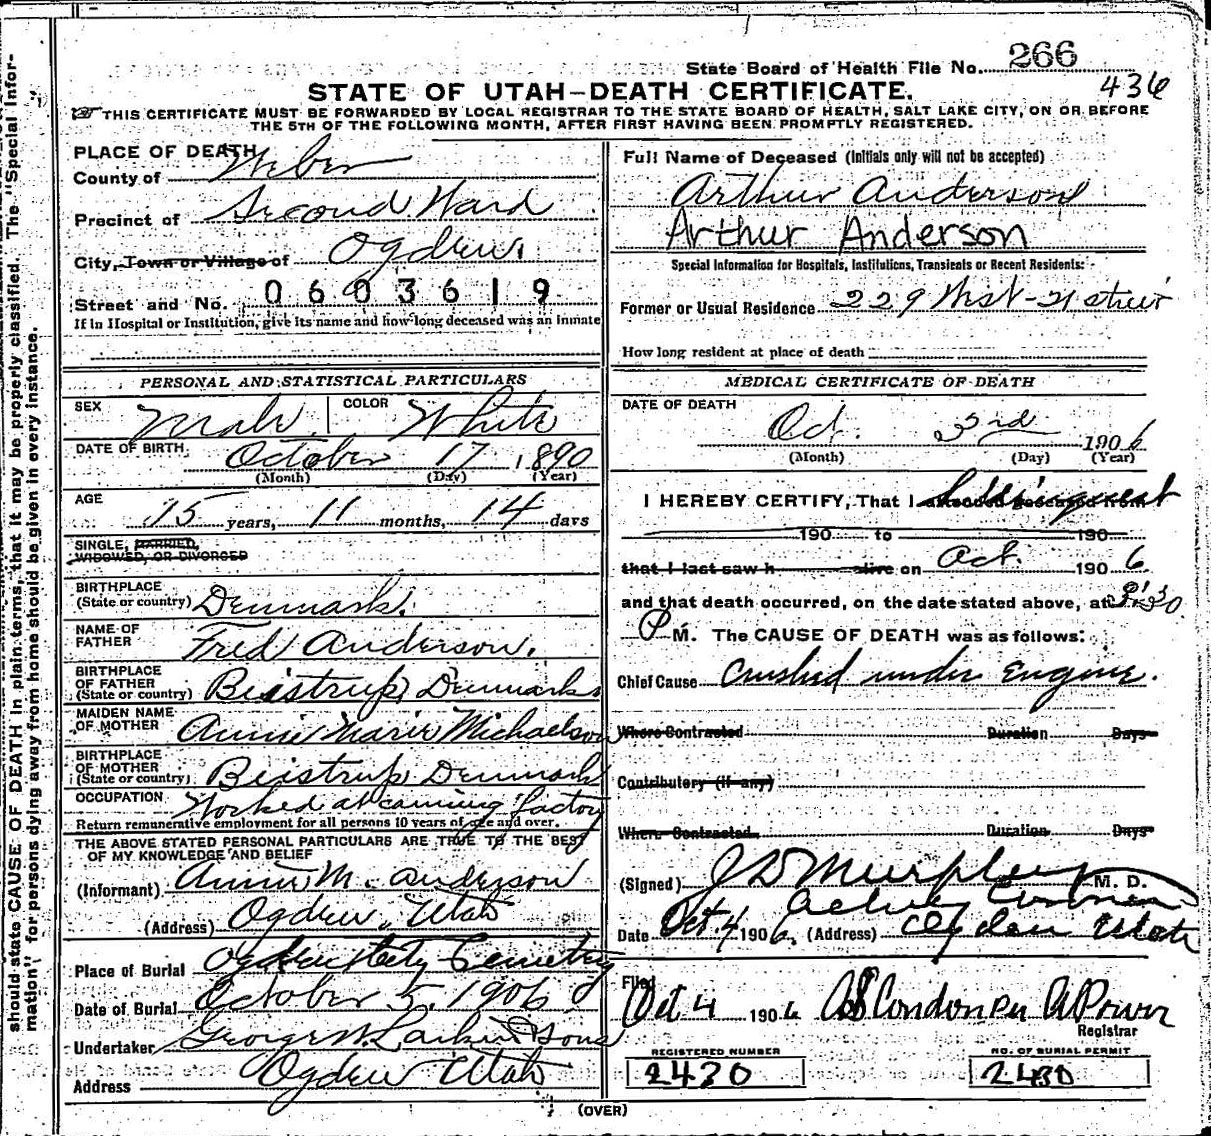 State Board of Health File No. 266
436
STATE OF UTAH—DEATH CERTIFICATE.
THIS CERTIFICATE MUST BE FORWARDED BY LOCAL REGISTRAR TO THE STATE BOARD OF HEALTH, SALT LAKE CITY, ON OR BEFORE
THE 5TH OF THE FOLLOWING MONTH, AFTER FIRST HAVING BEEN PROMPTLY REGISTERED.
PLACE OF DEATH
County of Weber
Precinct of Second Ward
City, Town or Village of Ogden.
Street and No. 0603619
If in Hospital or Institution, give its name and how long deceased was an inmate
PERSONAL AND STATISTICAL PARTICULARS
SEX Male. COLOR White
DATE OF BIRTH October 17 1890
(Month) (Day) (Year)
AGE
15 years, 11 months, 14 days
SINGLE, MARRIED,
WIDOWED, OR DIVORCED
BIRTHPLACE
(State or country) Denmark.
NAME OF
FATHER Fred Anderson.
BIRTHPLACE
OF FATHER
(State or country) Beistrup Denmark
MAIDEN NAME
OF MOTHER Annie Marie Michaelson
BIRTHPLACE
OF MOTHER
(State or country) Beistrup Denmark
OCCUPATION Worked at canning factory
Return remunerative employment for all persons 10 years of age and over.
THE ABOVE STATED PERSONAL PARTICULARS ARE TRUE TO THE BEST
OF MY KNOWLEDGE AND BELIEF
(Informant) Annie M. Anderson
(Address) Ogden, Utah
Place of Burial Ogden City Cemetery
Date of Burial October 5, 1906
Undertaker George W. Larkin & Sons
Address Ogden Utah
Full Name of Deceased (Initials only will not be accepted)
Arthur Anderson
Arthur Anderson
Special Information for Hospitals, Institutions, Transients or Recent Residents:
Former or Usual Residence 229 West-21 street
How long resident at place of death
MEDICAL CERTIFICATE OF DEATH
DATE OF DEATH
Oct. 3rd 1906
(Month) (Day) (Year)
I HEREBY CERTIFY, That I attended deceased from inquest
190 to 190
that I last saw h alive on Oct. 1906
and that death occurred, on the date stated above, at 3:30
P M. The CAUSE OF DEATH was as follows:
Chief Cause Crushed under Engine.
Where Contracted Duration Days
Contributory (if any)
Where Contracted Duration Days
(Signed) J D Murphy M. D.
Acting Coroner
Date Oct. 4 1906. (Address) Ogden Utah
Filed
Oct 4 1906
Registrar
REGISTERED NUMBER
2430
NO. OF BURIAL PERMIT
2430
(OVER)
should state CAUSE OF DEATH in plain terms, that it may be properly classified. The "Special Infor-
mation" for persons dying away from home should be given in every instance.